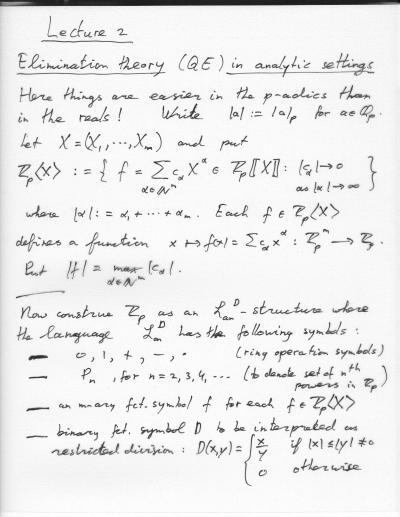 Lecture 2
Elimination theory (QE) in analytic settings
Here things are easier in the p-adics than
in the reals! Write |a| := |a|_p for a∈ℚ_p.
Let X = (X_1, ⋯, X_m) and put
ℤ_p⟨X⟩ := { f = ∑_{α∈ℕ^m} c_α X^α ∈ ℤ_p⟦X⟧ : |c_α|→0 as |α|→∞ }
where |α| := α_1 + ⋯ + α_m. Each f ∈ ℤ_p⟨X⟩
defines a function x ↦ f(x) = ∑ c_α x^α : ℤ_p^m → ℤ_p.
Put |f| = max_{α∈ℕ^m} |c_α|.
Now construe ℤ_p as an L_an^D-structure where
the language L_an^D has the following symbols :
— 0, 1, +, −, · (ring operation symbols)
— P_n, for n = 2, 3, 4, ⋯ (to denote set of n^th powers in ℤ_p)
— an m-ary fct. symbol f for each f ∈ ℤ_p⟨X⟩
— binary fct. symbol D to be interpreted as
restricted division : D(x,y) = { x/y if |x| ≤ |y| ≠ 0
0 otherwise